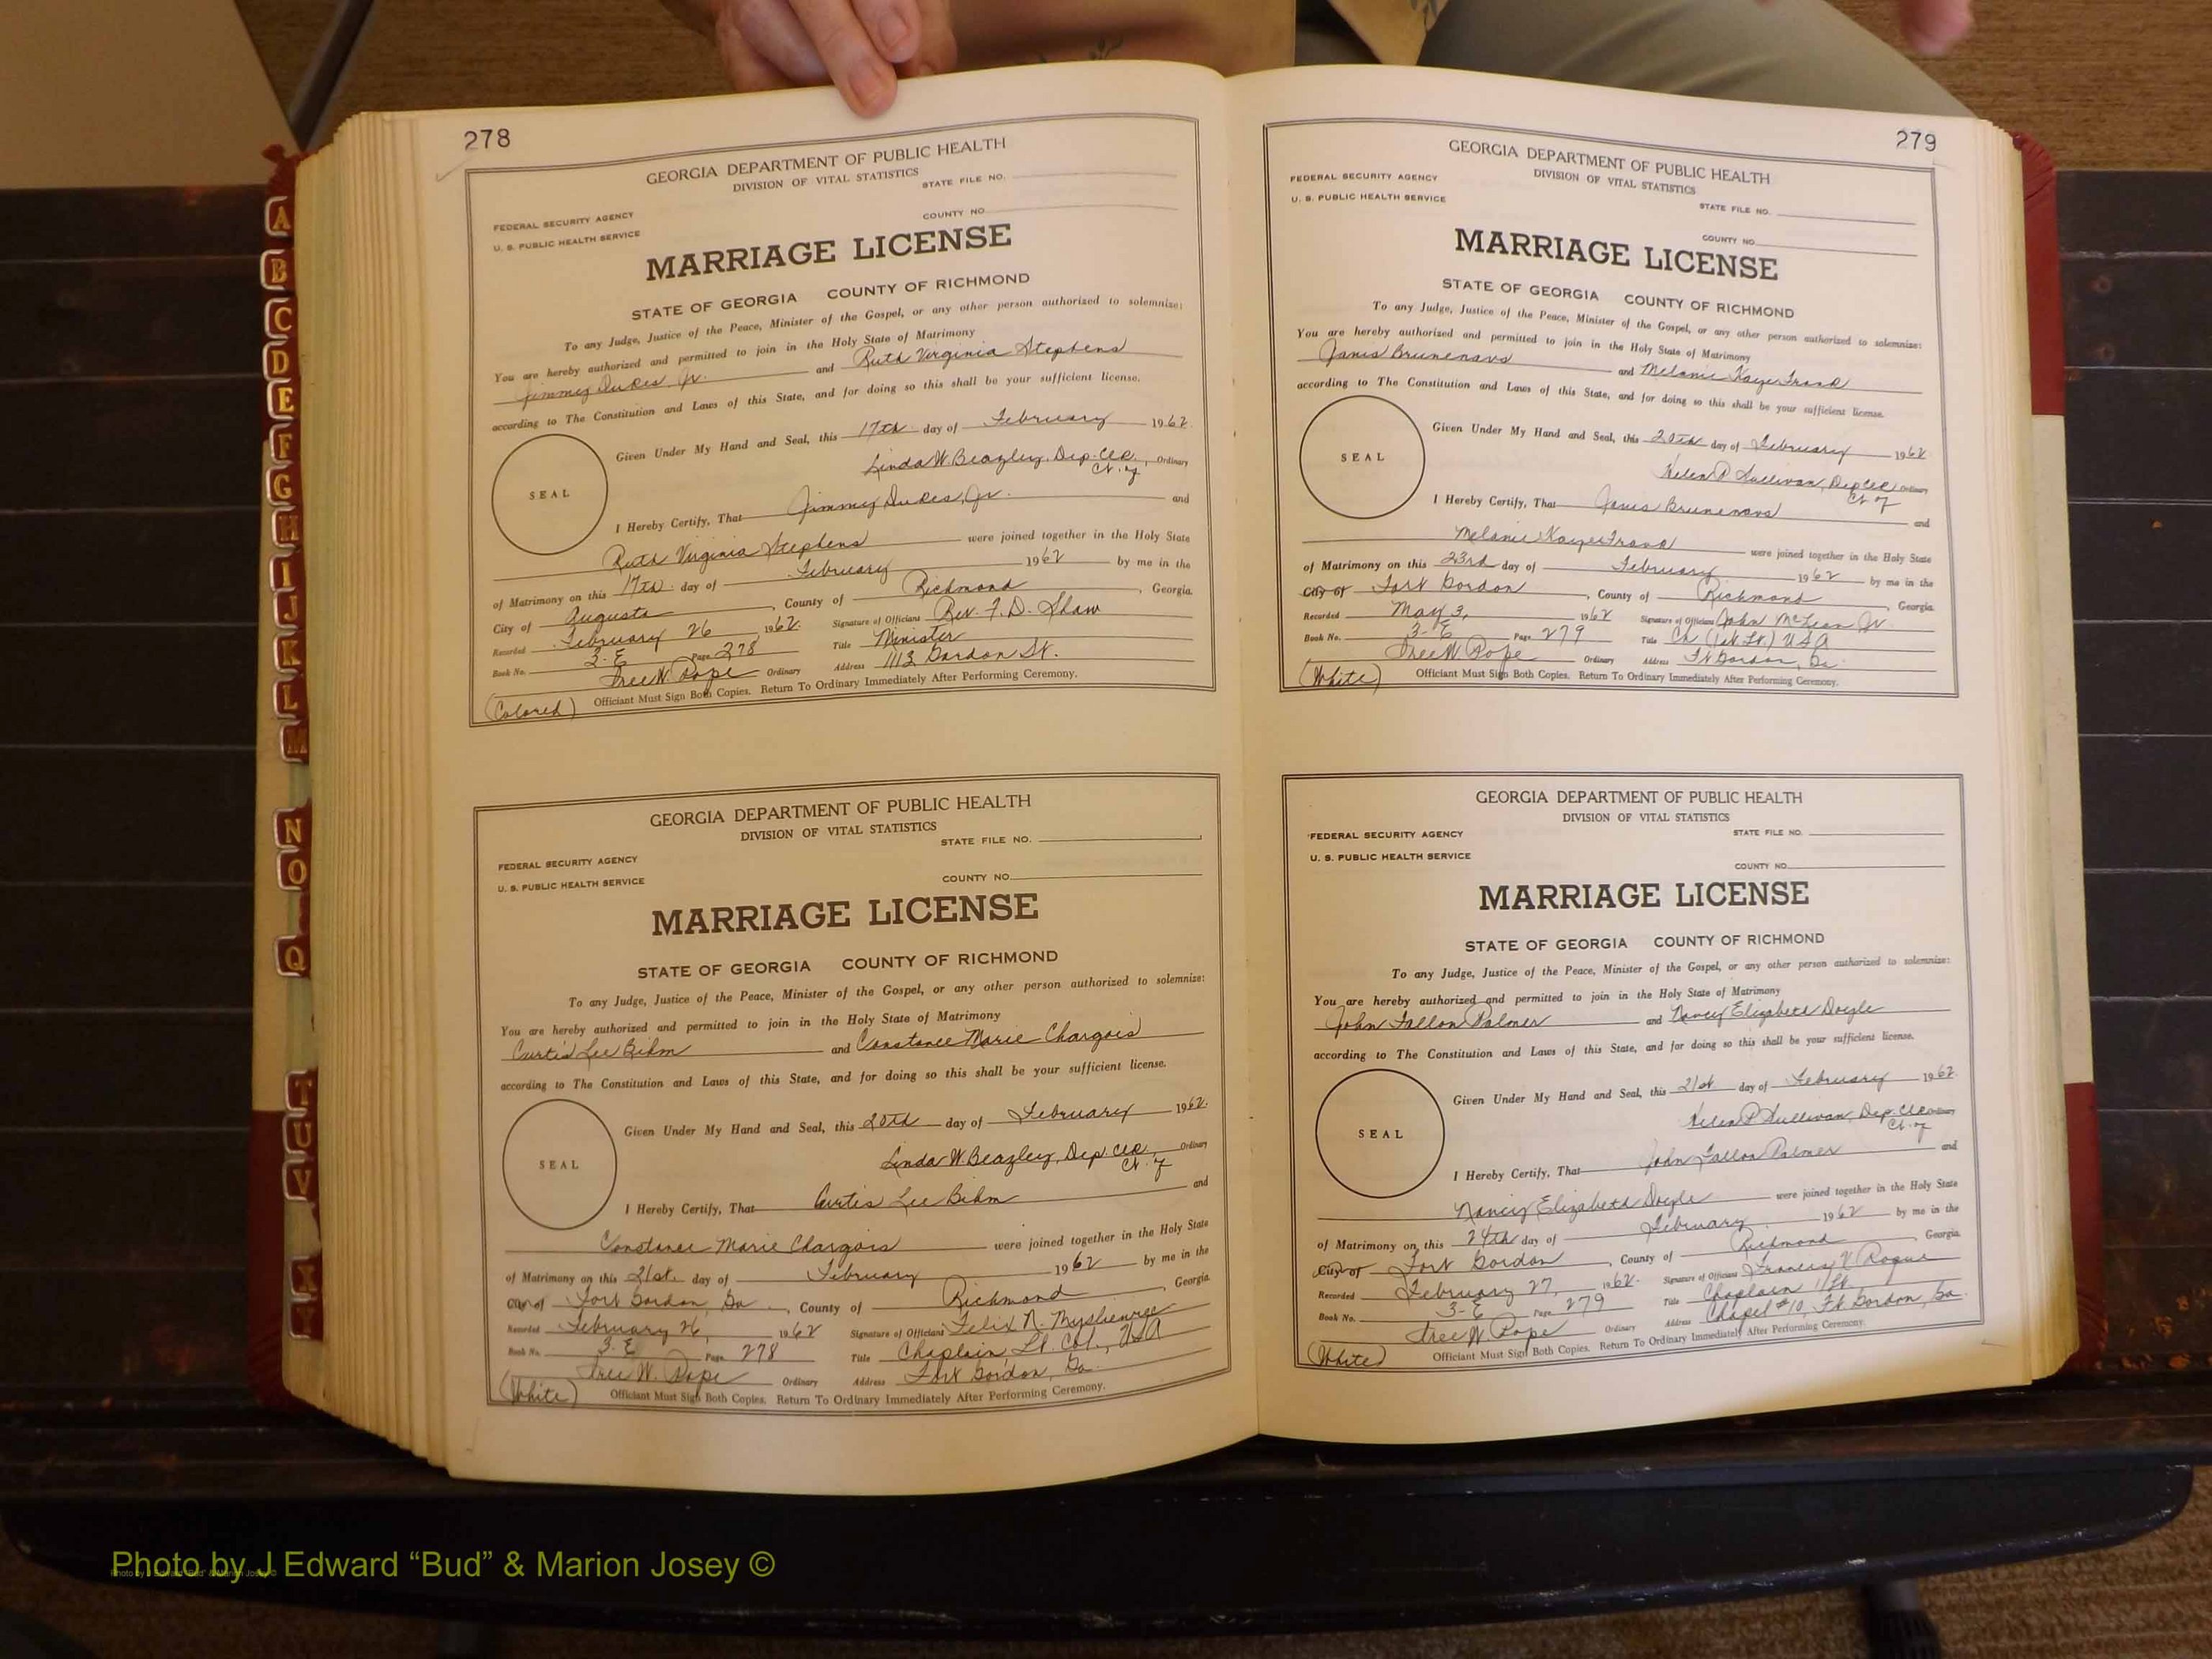 278
GEORGIA DEPARTMENT OF PUBLIC HEALTH
DIVISION OF VITAL STATISTICS
STATE FILE NO.
FEDERAL SECURITY AGENCY
COUNTY NO.
U. S. PUBLIC HEALTH SERVICE
MARRIAGE LICENSE
STATE OF GEORGIA COUNTY OF RICHMOND
To any Judge, Justice of the Peace, Minister of the Gospel, or any other person authorized to solemnize:
You are hereby authorized and permitted to join in the Holy State of Matrimony
Jimmy Dukes, Jr. and Ruth Virginia Stephens
according to The Constitution and Laws of this State, and for doing so this shall be your sufficient license.
Given Under My Hand and Seal, this 17th day of February 1962.
Linda W. Beazley, Dep. Clk., Ordinary
Ct. of
SEAL
I Hereby Certify, That Jimmy Dukes, Jr. and
Ruth Virginia Stephens were joined together in the Holy State
of Matrimony on this 17th day of February 1962 by me in the
City of Augusta, County of Richmond, Georgia.
Recorded February 26, 1962. Signature of Officiant Rev. F. D. Shaw
Book No. 3-E Page 278 Title Minister
Tree W. Pope Ordinary Address 1113 Gordon St.
(Colored) Officiant Must Sign Both Copies. Return To Ordinary Immediately After Performing Ceremony.
GEORGIA DEPARTMENT OF PUBLIC HEALTH
DIVISION OF VITAL STATISTICS
STATE FILE NO.
FEDERAL SECURITY AGENCY
COUNTY NO.
U. S. PUBLIC HEALTH SERVICE
MARRIAGE LICENSE
STATE OF GEORGIA COUNTY OF RICHMOND
To any Judge, Justice of the Peace, Minister of the Gospel, or any other person authorized to solemnize:
You are hereby authorized and permitted to join in the Holy State of Matrimony
Curtis Lee Bihm and Constance Marie Chargois
according to The Constitution and Laws of this State, and for doing so this shall be your sufficient license.
Given Under My Hand and Seal, this 20th day of February 1962.
Linda W. Beazley, Dep. Clk., Ordinary
Ct. of
SEAL
I Hereby Certify, That Curtis Lee Bihm and
Constance Marie Chargois were joined together in the Holy State
of Matrimony on this 21st. day of February 1962 by me in the
City of Fort Gordon, Ga., County of Richmond, Georgia.
Recorded February 26, 1962 Signature of Officiant Felix N.
Book No. 3-E Page 278 Title Chaplain, Lt. Col., USA
Tree W. Pope Ordinary Address Fort Gordon, Ga.
(White) Officiant Must Sign Both Copies. Return To Ordinary Immediately After Performing Ceremony.
279
GEORGIA DEPARTMENT OF PUBLIC HEALTH
DIVISION OF VITAL STATISTICS
FEDERAL SECURITY AGENCY
STATE FILE NO.
U. S. PUBLIC HEALTH SERVICE
COUNTY NO.
MARRIAGE LICENSE
STATE OF GEORGIA COUNTY OF RICHMOND
To any Judge, Justice of the Peace, Minister of the Gospel, or any other person authorized to solemnize:
You are hereby authorized and permitted to join in the Holy State of Matrimony
Janis Brunenavs and Melanie Kaye Frank
according to The Constitution and Laws of this State, and for doing so this shall be your sufficient license.
Given Under My Hand and Seal, this 20th day of February 1962
Helen P. Sullivan, Dep Clk Ordinary
Ct. of
SEAL
I Hereby Certify, That Janis Brunenavs and
Melanie Kaye Frank were joined together in the Holy State
of Matrimony on this 23rd day of February 1962 by me in the
City of Fort Gordon, County of Richmond, Georgia.
Recorded May 3, 1962 Signature of Officiant John McLean Jr.
Book No. 3-E Page 279 Title Ch (1st Lt.) USA
Tree W. Pope Ordinary Address Ft Gordon, Ga.
(White) Officiant Must Sign Both Copies. Return To Ordinary Immediately After Performing Ceremony.
GEORGIA DEPARTMENT OF PUBLIC HEALTH
DIVISION OF VITAL STATISTICS
FEDERAL SECURITY AGENCY STATE FILE NO.
U. S. PUBLIC HEALTH SERVICE
COUNTY NO.
MARRIAGE LICENSE
STATE OF GEORGIA COUNTY OF RICHMOND
To any Judge, Justice of the Peace, Minister of the Gospel, or any other person authorized to solemnize:
You are hereby authorized and permitted to join in the Holy State of Matrimony
John Fallon Palmer and Nancy Elizabeth Doyle
according to The Constitution and Laws of this State, and for doing so this shall be your sufficient license.
Given Under My Hand and Seal, this 21st day of February 1962.
Helen P. Sullivan, Dep. Clk Ordinary
Ct. of
SEAL
I Hereby Certify, That John Fallon Palmer and
Nancy Elizabeth Doyle were joined together in the Holy State
of Matrimony on this 24th day of February 1962 by me in the
City of Fort Gordon, County of Richmond Georgia.
Recorded February 27, 1962. Signature of Officiant Francis V. Rogue
Book No. 3-E Page 279 Title Chaplain 1/Lt.
Tree W. Pope Ordinary Address Chapel #10, Ft Gordon, Ga.
(White) Officiant Must Sign Both Copies. Return To Ordinary Immediately After Performing Ceremony.
A
B
C
D
E
F
G
H
I
J
K
L
M
N
O
Q
T
U
V
Photo by J Edward “Bud” & Marion Josey ©
Photo by J Edward "Bud" & Marion Josey ©